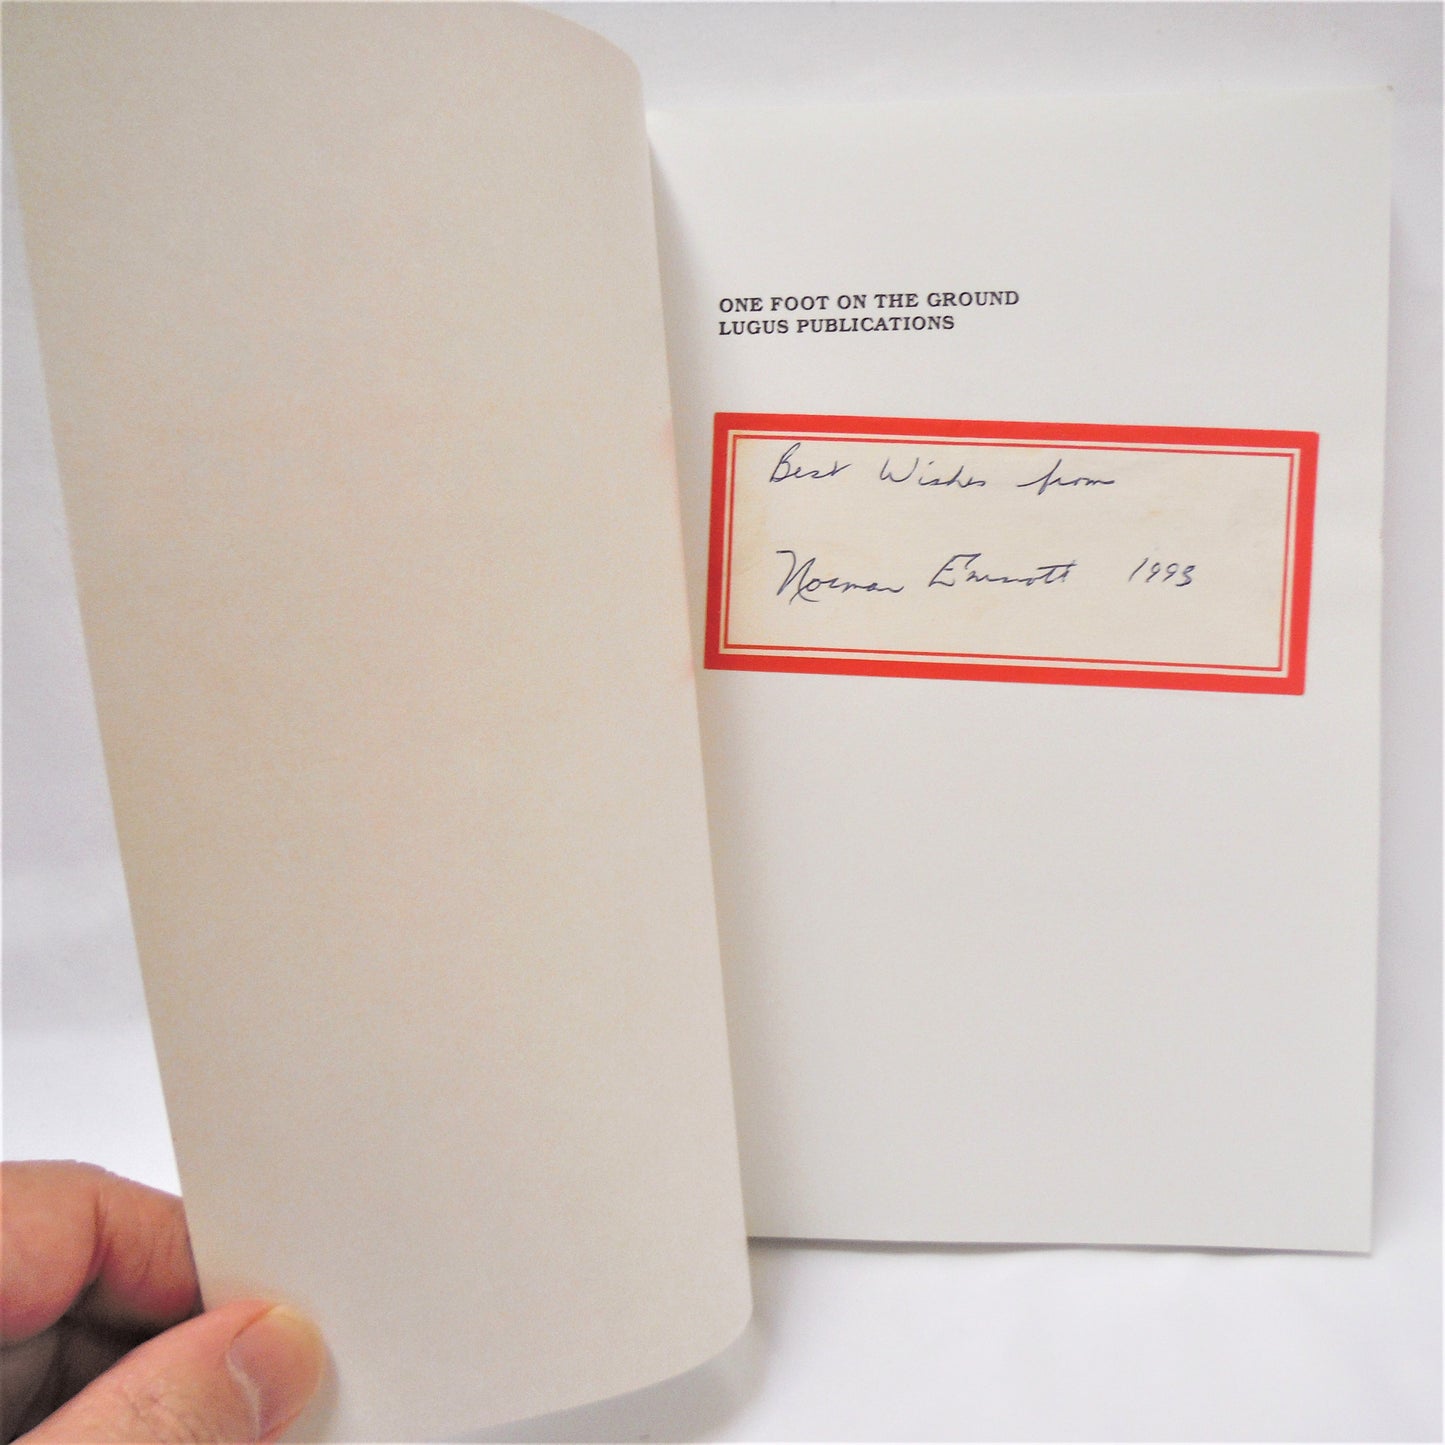 ONE FOOT ON THE GROUND
LUGUS PUBLICATIONS
Best Wishes from
Norman Emmott 1993